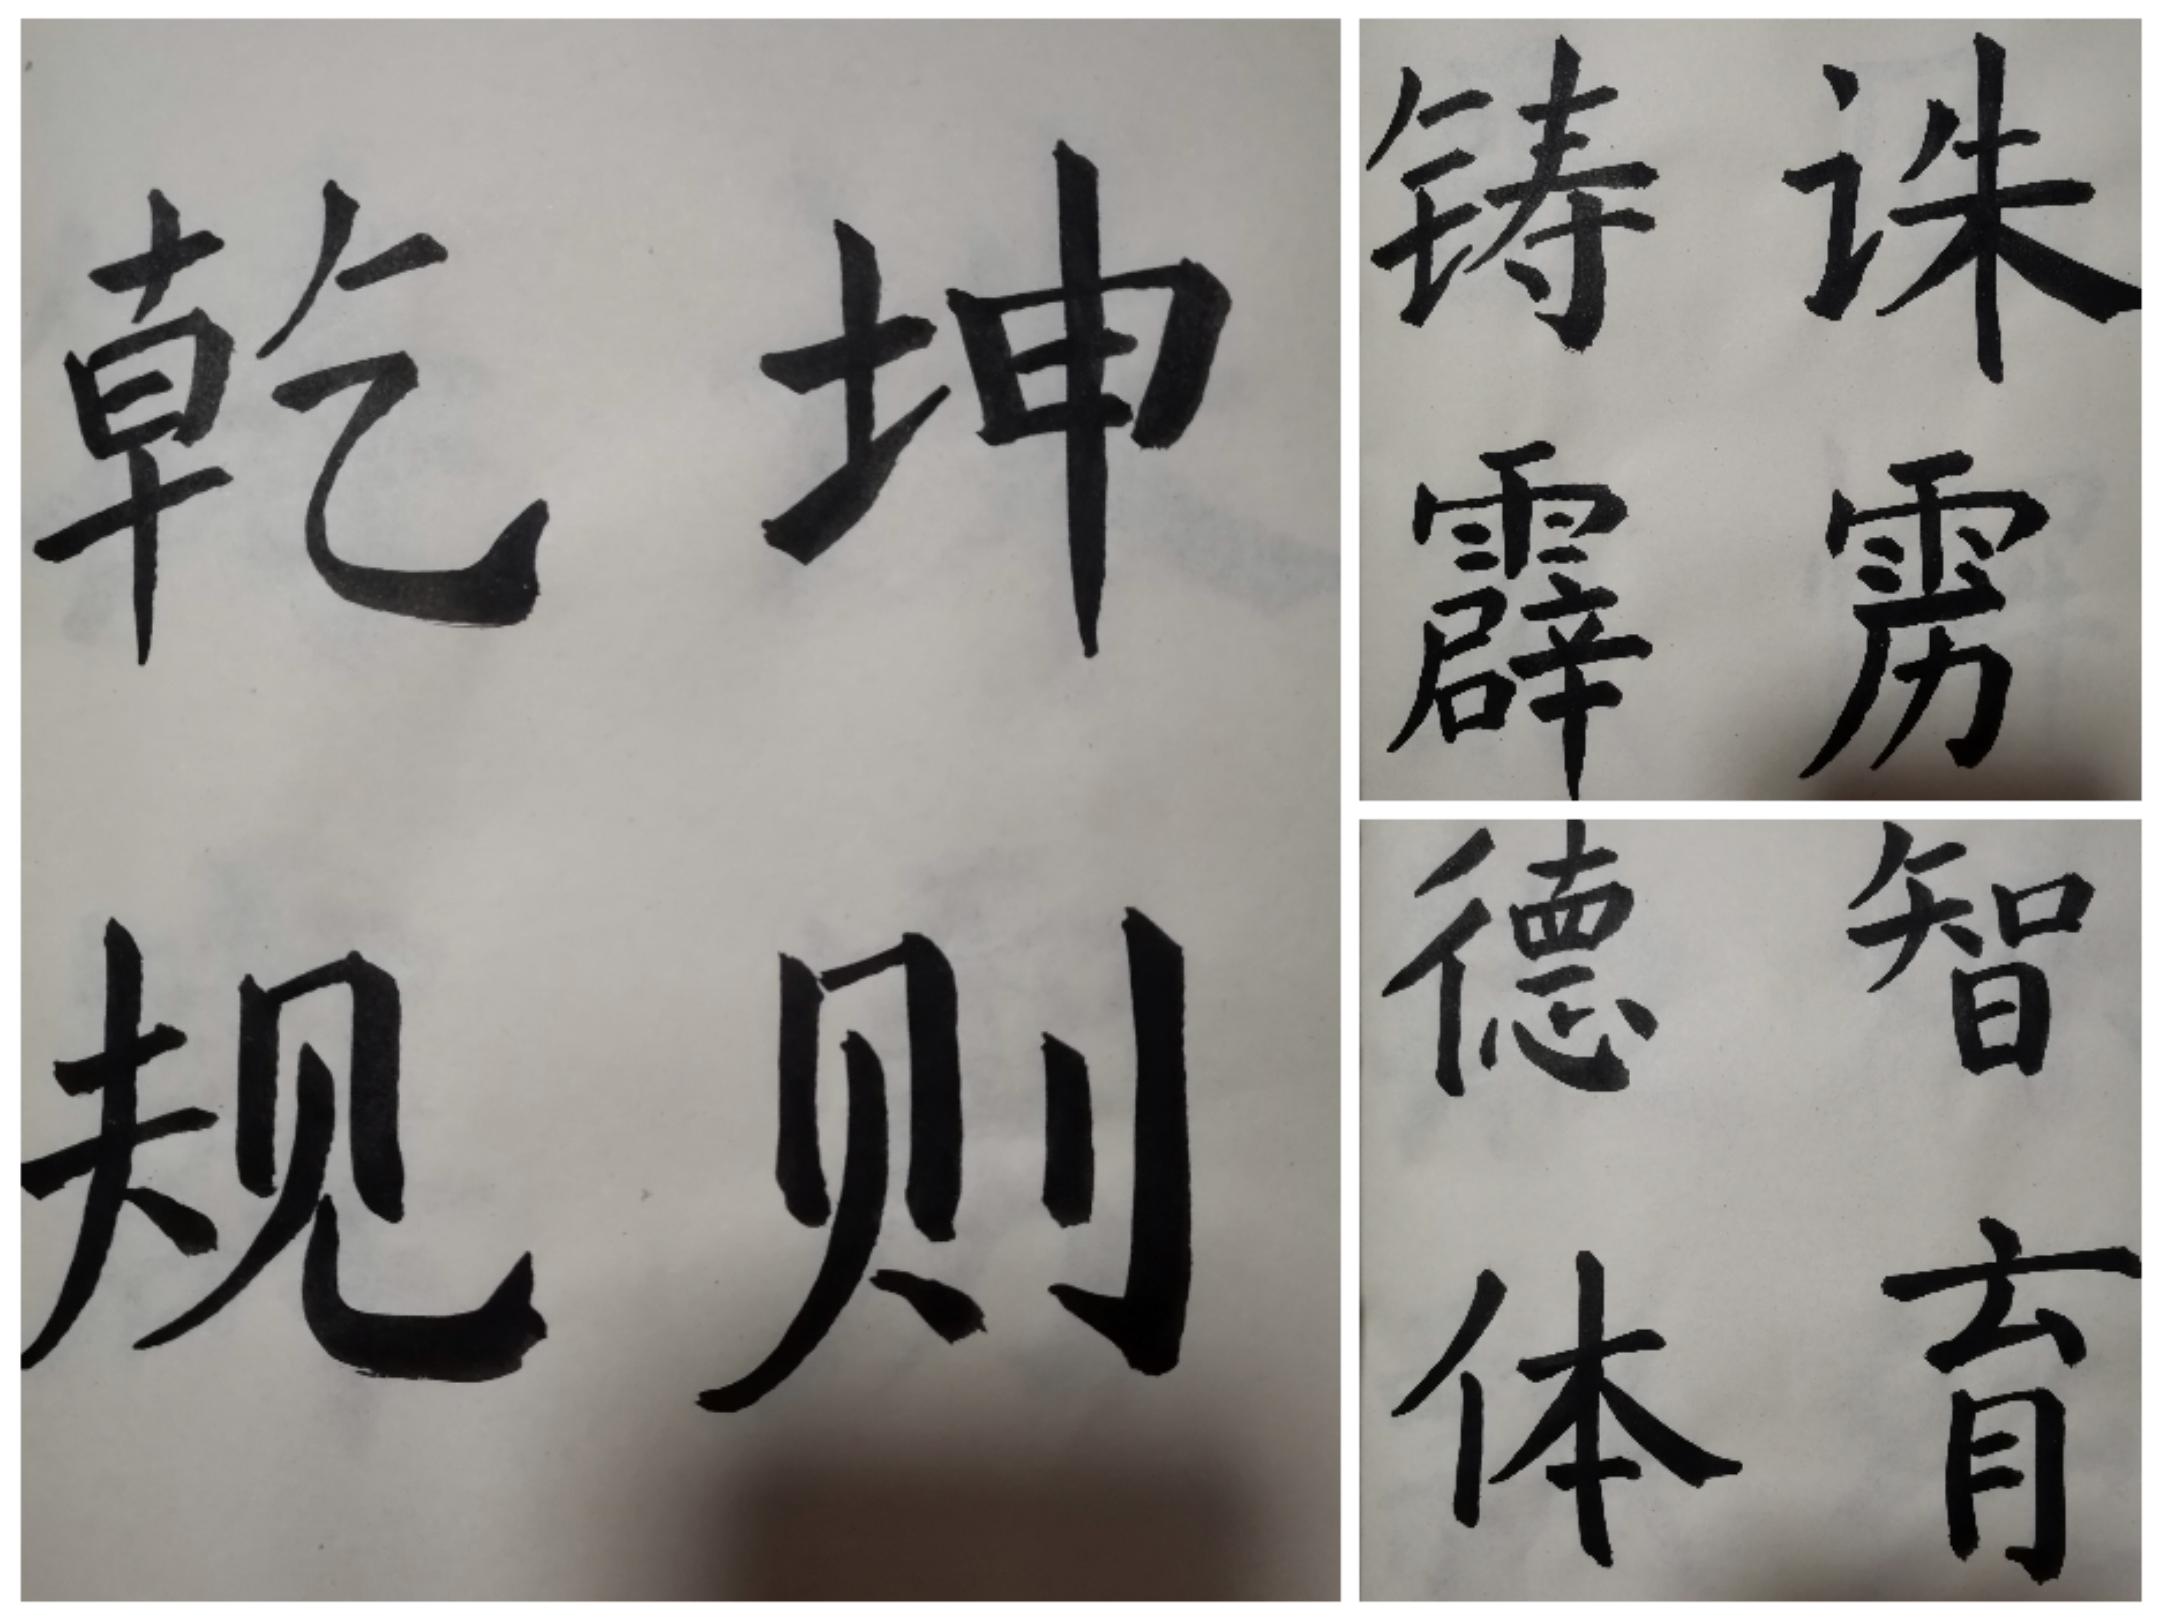 乾坤
规则
铸诛
霹雳
德智
体育